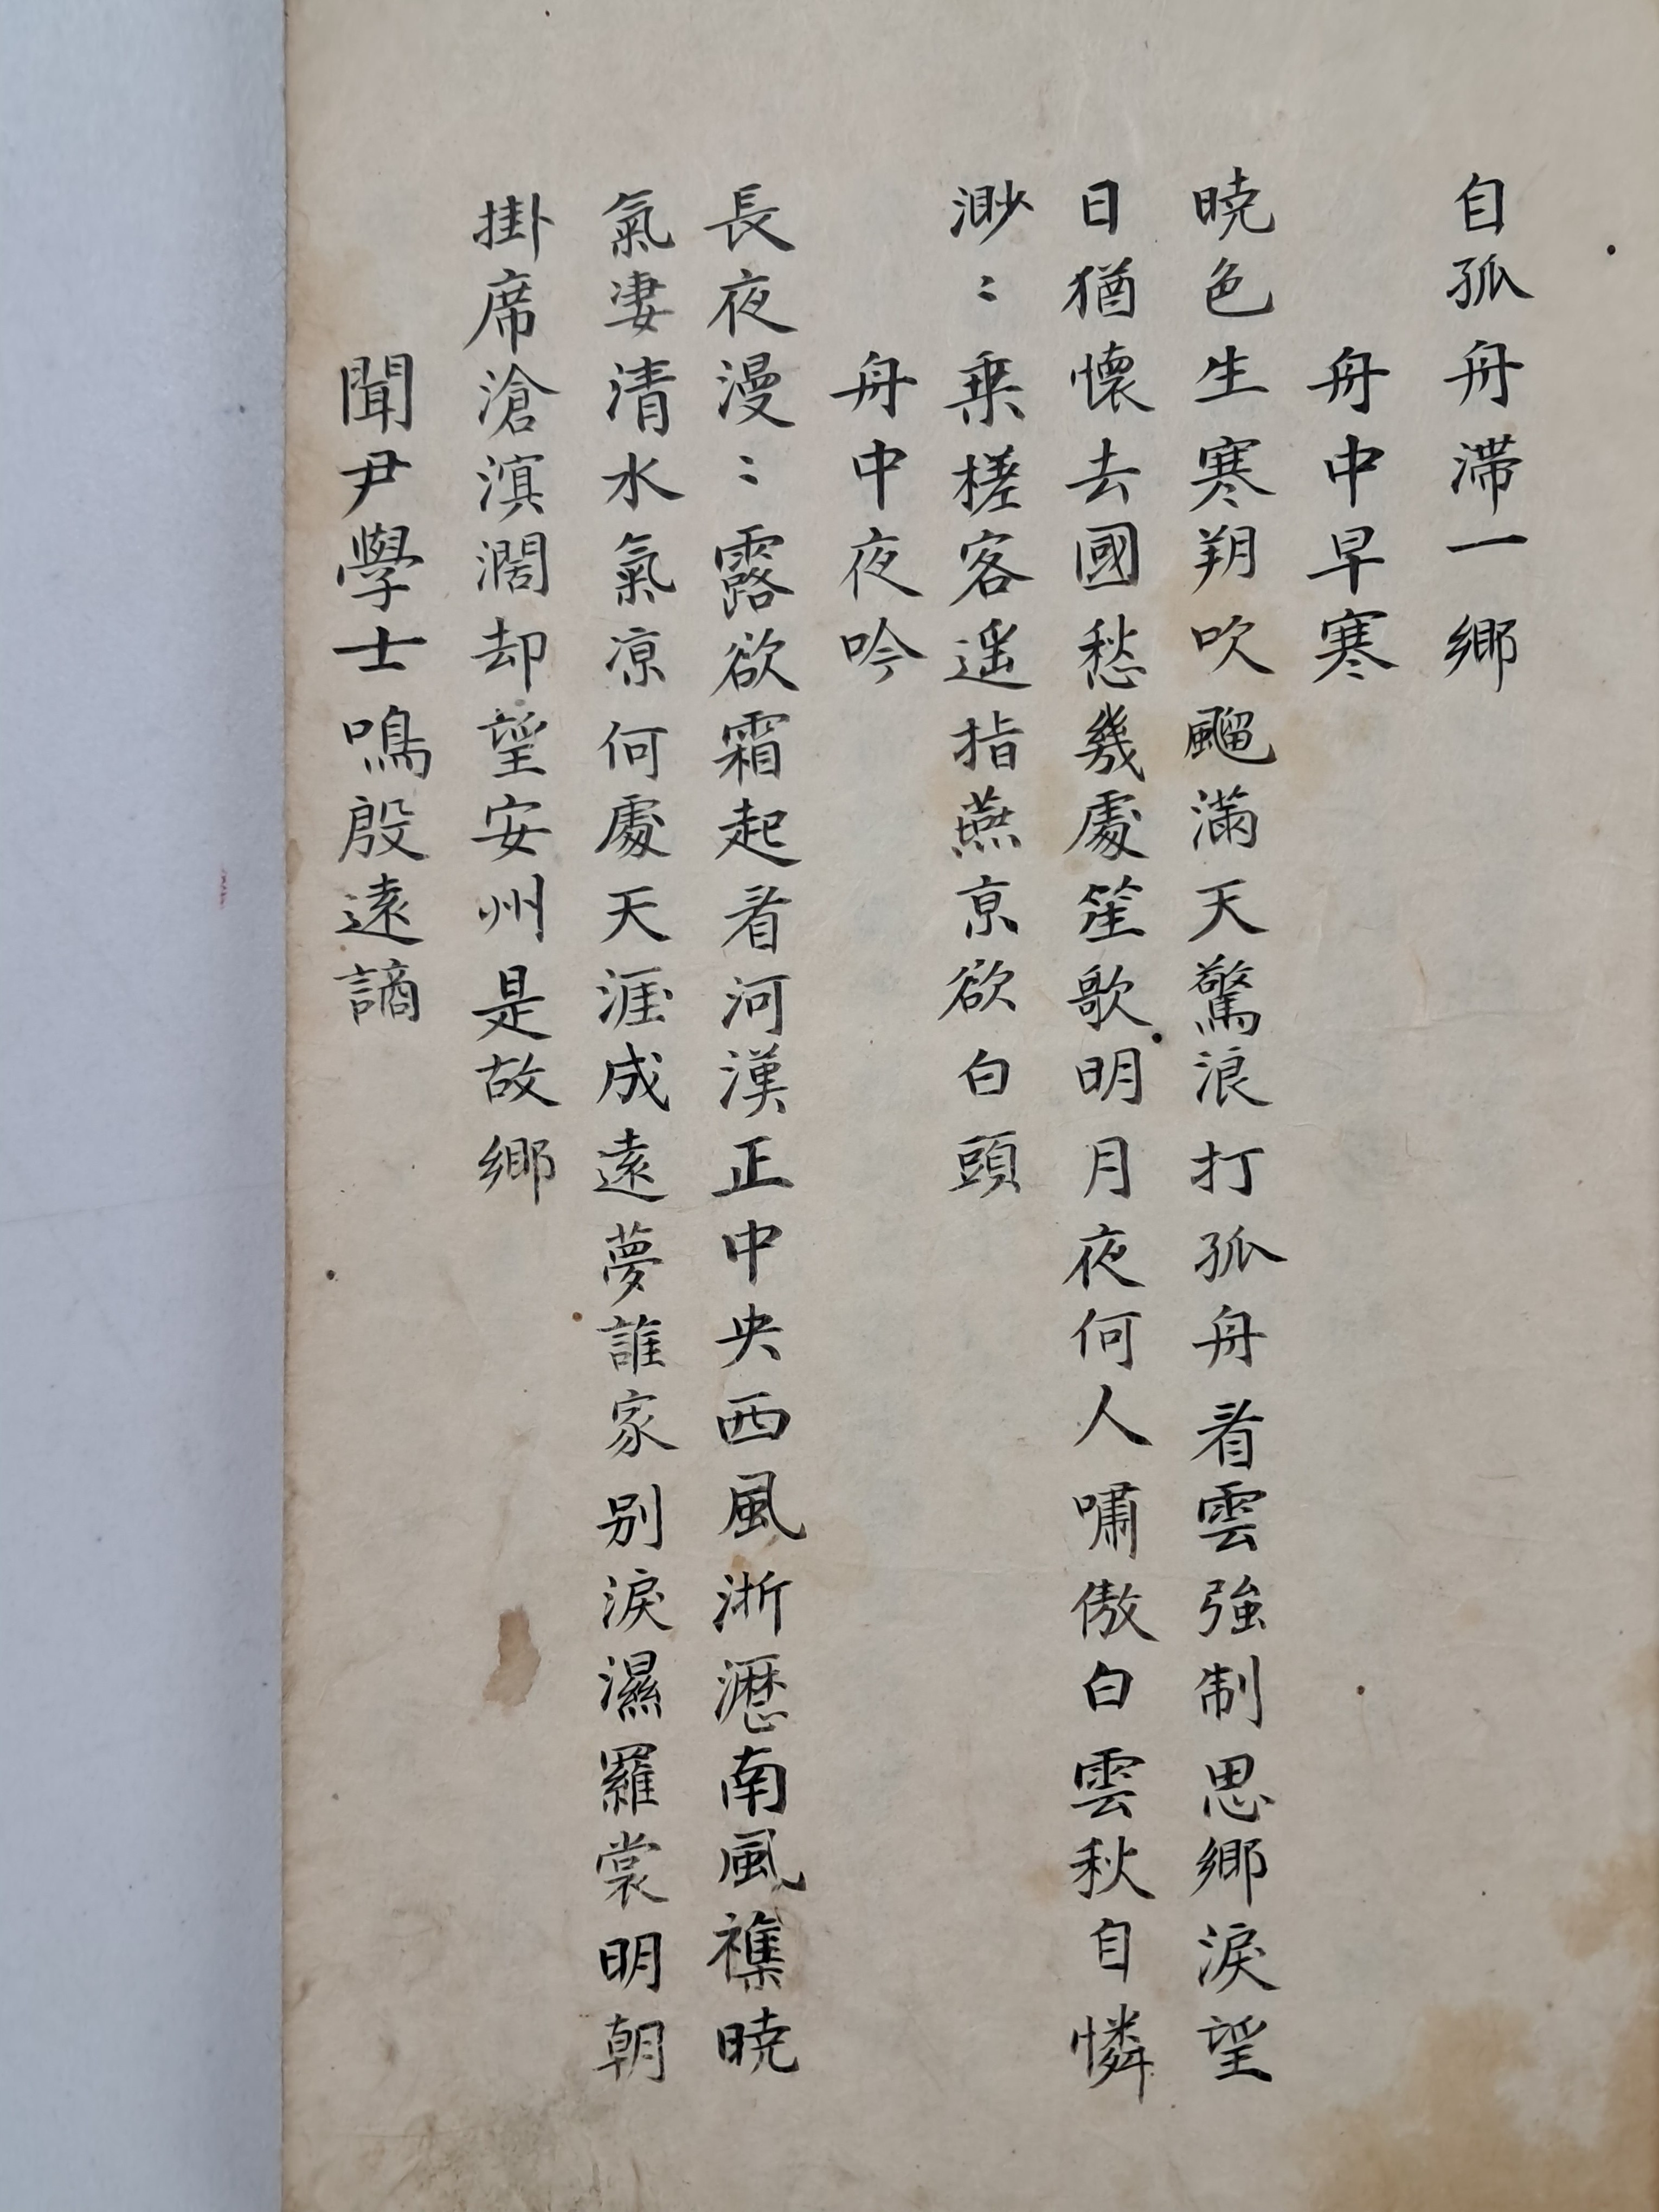 自孤舟滯一鄉
舟中早寒
曉色生寒朔吹飀滿天驚浪打孤舟看雲強制思鄉淚望
日猶懷去國愁幾處笙歌明月夜何人嘯傲白雲秋自憐
渺〻乗槎客遥指燕京欲白頭
舟中夜吟
長夜漫〻露欲霜起看河漢正中央西風淅瀝南風襍曉
氣凄清水氣凉何處天涯成遠夢誰家别淚濕羅裳明朝
掛席滄溟濶却望安州是故鄉
聞尹學士鳴殷遠謫